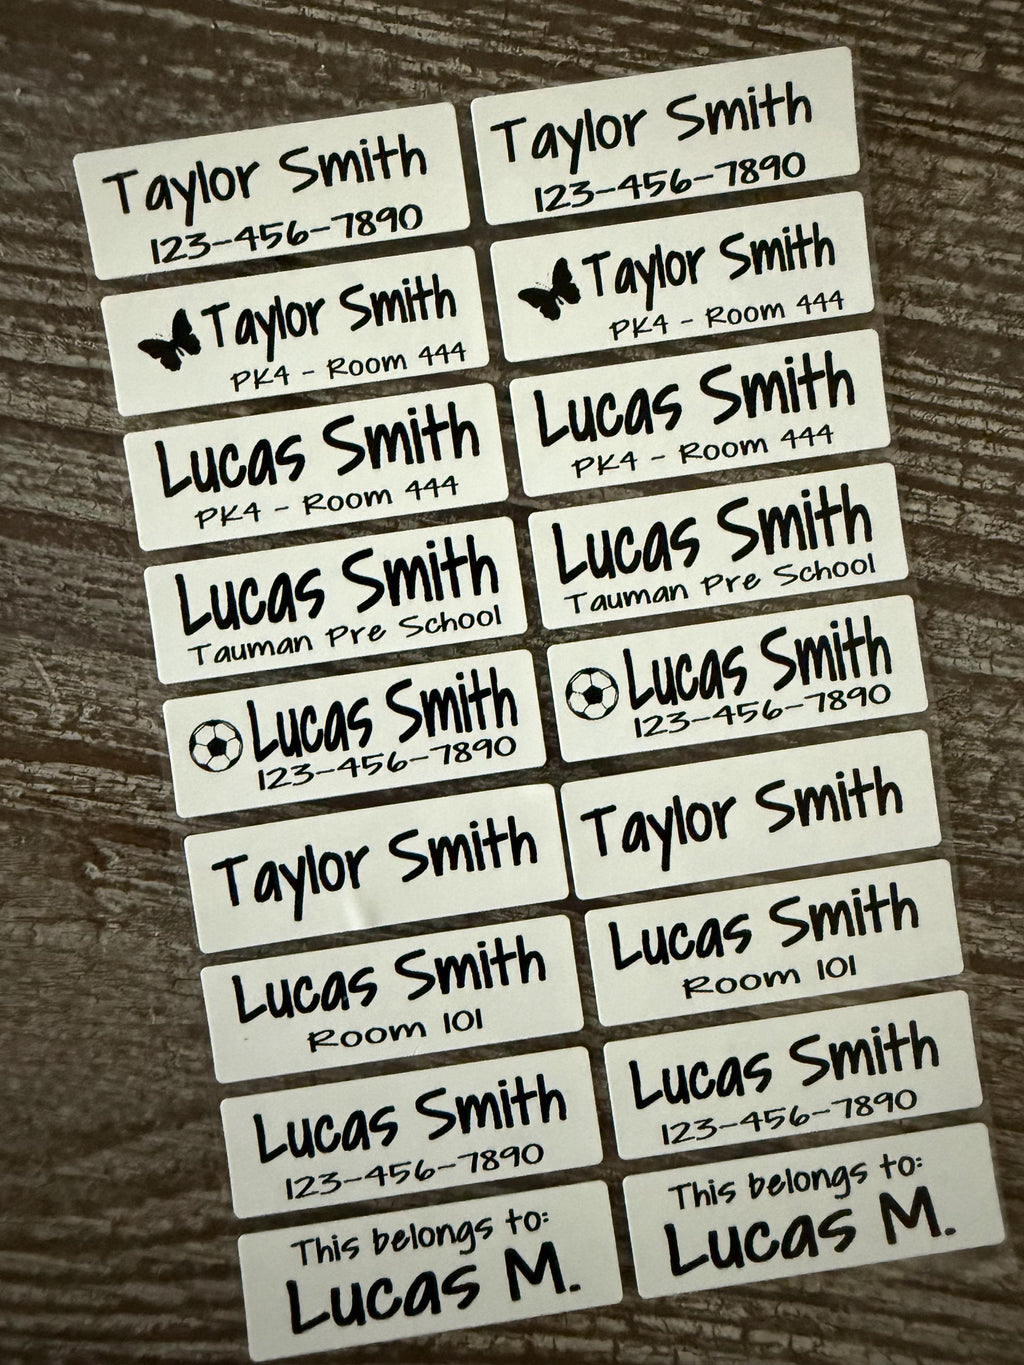 Taylor Smith
123-456-7890
Taylor Smith
123-456-7890
Taylor Smith
PK4 - Room 444
Taylor Smith
PK4 - Room 444
Lucas Smith
PK4 - Room 444
Lucas Smith
PK4 - Room 444
Lucas Smith
Tauman Pre School
Lucas Smith
Tauman Pre School
Lucas Smith
123-456-7890
Lucas Smith
123-456-7890
Taylor Smith
Taylor Smith
Lucas Smith
Room 101
Lucas Smith
Room 101
Lucas Smith
123-456-7890
Lucas Smith
123-456-7890
This belongs to:
Lucas M.
This belongs to:
Lucas M.